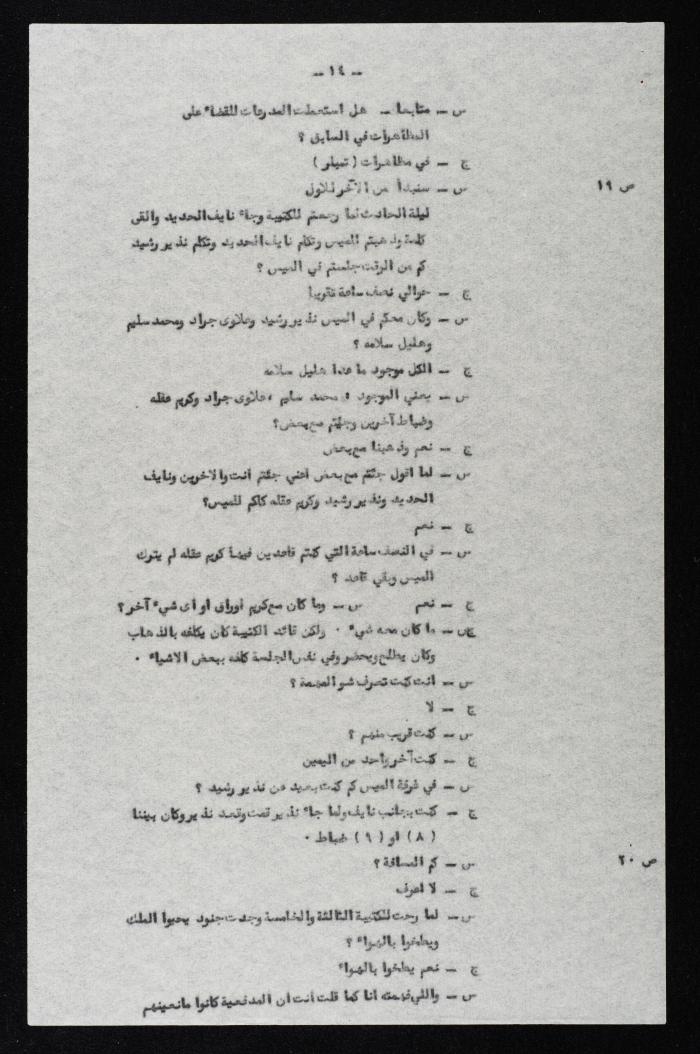 -- ١٤ --
س - متابعا - هل استعملت المدرعات للقضاء على
المظاهرات في السابق ؟
ج - في مظاهرات ( تمبلر )
ص ١٩
س - سنبدأ من الآخر للاول
ليلة الحادث لما رجعتم للكتيبة وجاء نايف الحديد والقى
كلمة وذهبتم للميس وتكلم نايف الحديد وتكلم نذير رشيد
كم من الوقت جلستم في الميس ؟
ج - حوالي نصف ساعة تقريبا
س - وكان معكم في الميس نذير رشيد وعلاوى جراد ومحمد سليم
وهليل سلامه ؟
ج - الكل موجود ما عدا هليل سلامه
س - يعني الموجود : محمد سليم ، علاوى جراد وكريم عقله
وضباط آخرين وجئتم مع بعض؟
ج - نعم وذهبنا مع بعض
س - لما اقول جئتم مع بعض اعني جئتم أنت والاخرين ونايف
الحديد ونذير رشيد وكريم عقله كلكم للميس؟
ج - نعم
س - في النصف ساعة التي كنتم قاعدين فيها كريم عقله لم يترك
الميس وبقي قاعد ؟
ج - نعم س - وما كان مع كريم اوراق او أى شيء آخر ؟
ج - ما كان معه شيء . ولكن قائد الكتيبة كان يكلفه بالذهاب
وكان يطلع ويحضر وفي نفس الجلسة كلفه ببعض الاشياء .
س - انت كنت تعرف شو المهمة ؟
ج - لا
س - كنت قريب منهم ؟
ج - كنت آخر واحد من اليمين
س - في غرفة الميس كم كنت بعيد عن نذير رشيد ؟
ج - كنت بجانب نايف ولما جاء نذير قمت وقعد نذير وكان بيننا
( ٨ ) او ( ٩ ) ضباط .
ص ٢٠
س - كم المسافة ؟
ج - لا اعرف
س - لما رحت للكتيبة الثالثة والخامسة وجدت جنود يحبوا الملك
ويطخوا بالهواء ؟
ج - نعم يطخوا بالهواء
س - واللي فهمته انا كما قلت أنت ان المدفعية كانوا مانعينهم